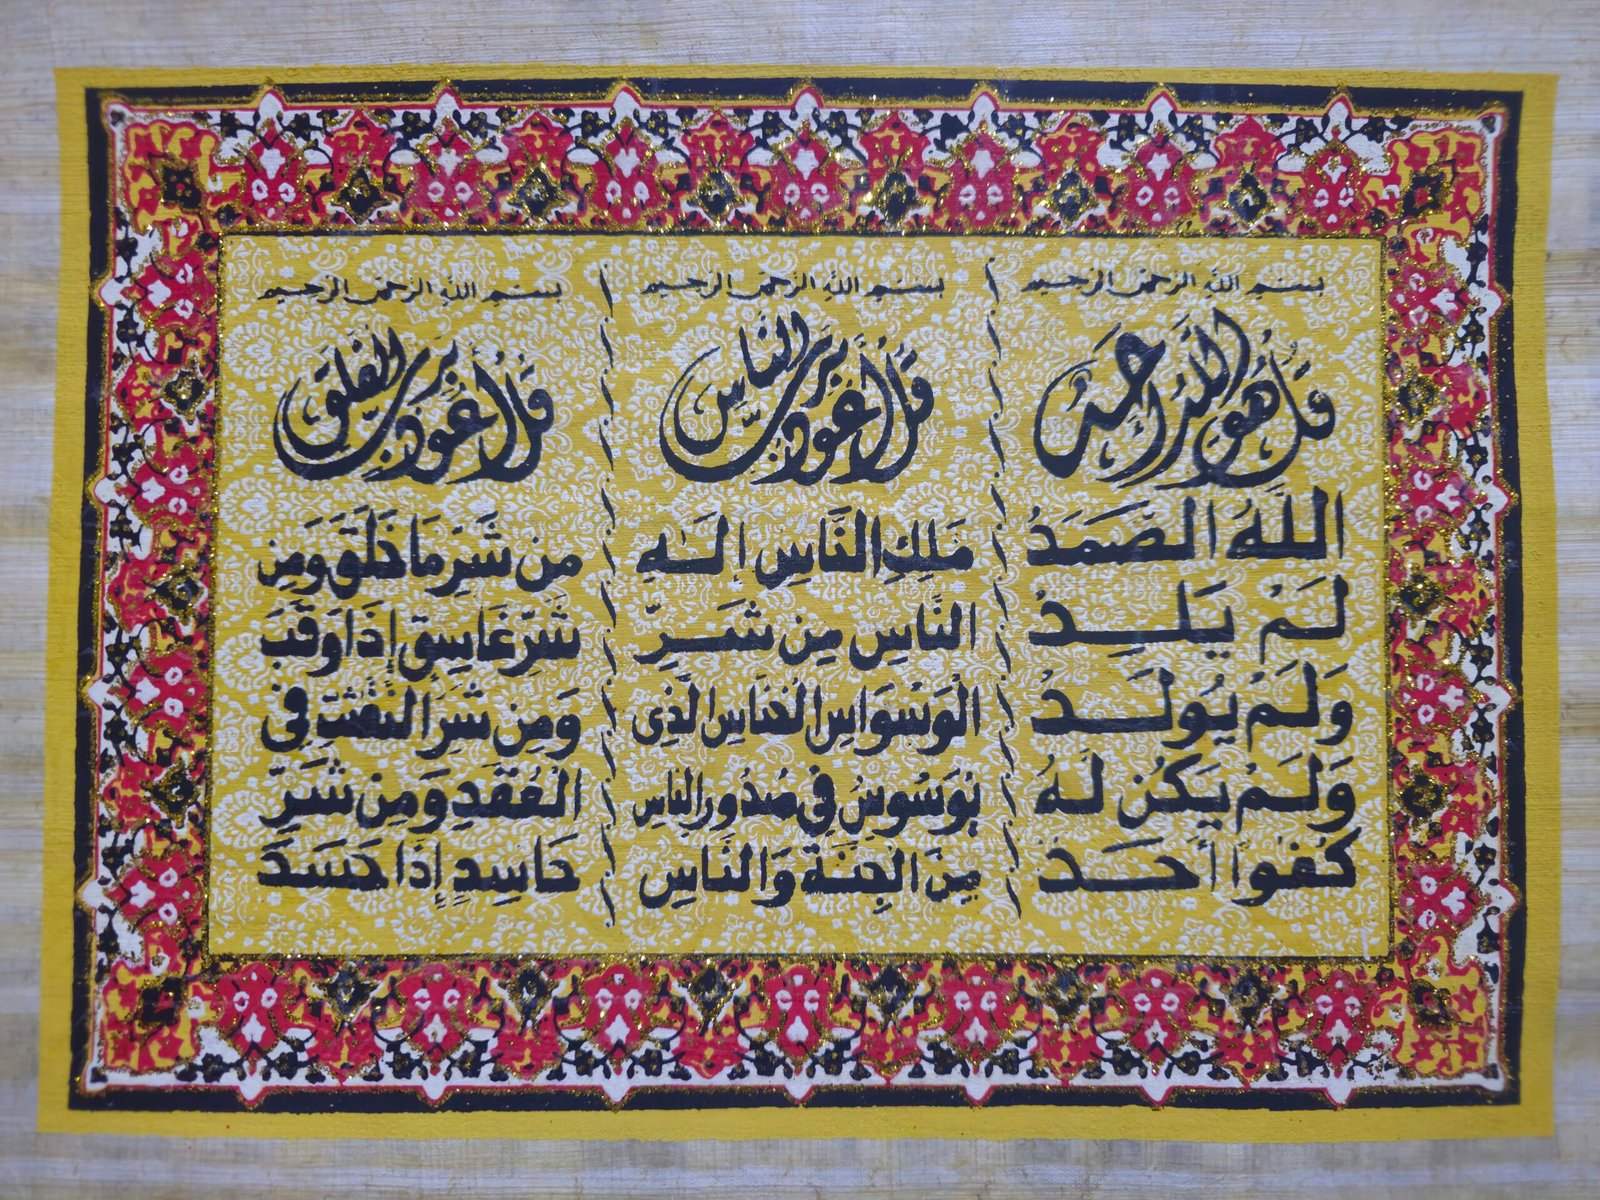 بسم الله الرحمن الرحيم
قل هو الله احد
اللَّهُ الصَّمَدُ
لَمْ يَلِدْ
وَلَمْ يُولَدْ
وَلَمْ يَكُن لَهُ
كُفُواً أَحَد
بسم الله الرحمن الرحيم
قل أعوذ برب الناس
مَلِكِ النَّاسِ إِلَٰهِ
النَّاسِ مِن شَرِّ
الْوَسْوَاسِ الْخَنَّاسِ الَّذِى
يُوَسْوِسُ فِى صُدُورِ النَّاسِ
مِنَ الْجِنَّةِ وَالنَّاسِ
بسم الله الرحمن الرحيم
قل أعوذ برب الفلق
مِن شَرِّ مَا خَلَقَ وَمِن
شَرِّ غَاسِقٍ إِذَا وَقَبَ
وَمِن شَرِّ النَّفَّٰثَٰتِ فِى
الْعُقَدِ وَمِن شَرِّ
حَاسِدٍ إِذَا حَسَدَ